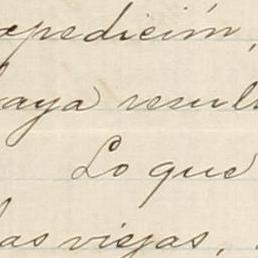 xpedición,
haya resul
Lo que
las viejas,